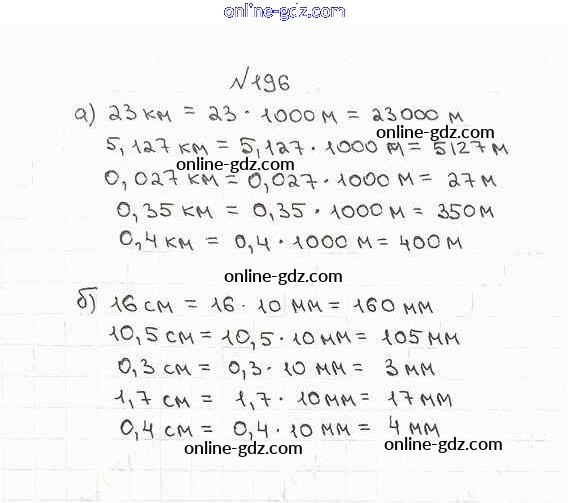 online-gdz.com
№196
а) 23 км = 23 · 1000 м = 23000 м
online-gdz.com
5,127 км = 5,127 · 1000 м = 5127 м
online-gdz.com
0,027 км = 0,027 · 1000 м = 27 м
0,35 км = 0,35 · 1000 м = 350 м
0,4 км = 0,4 · 1000 м = 400 м
online-gdz.com
б) 16 см = 16 · 10 мм = 160 мм
10,5 см = 10,5 · 10 мм = 105 мм
0,3 см = 0,3 · 10 мм = 3 мм
1,7 см = 1,7 · 10 мм = 17 мм
0,4 см = 0,4 · 10 мм = 4 мм
online-gdz.com online-gdz.com